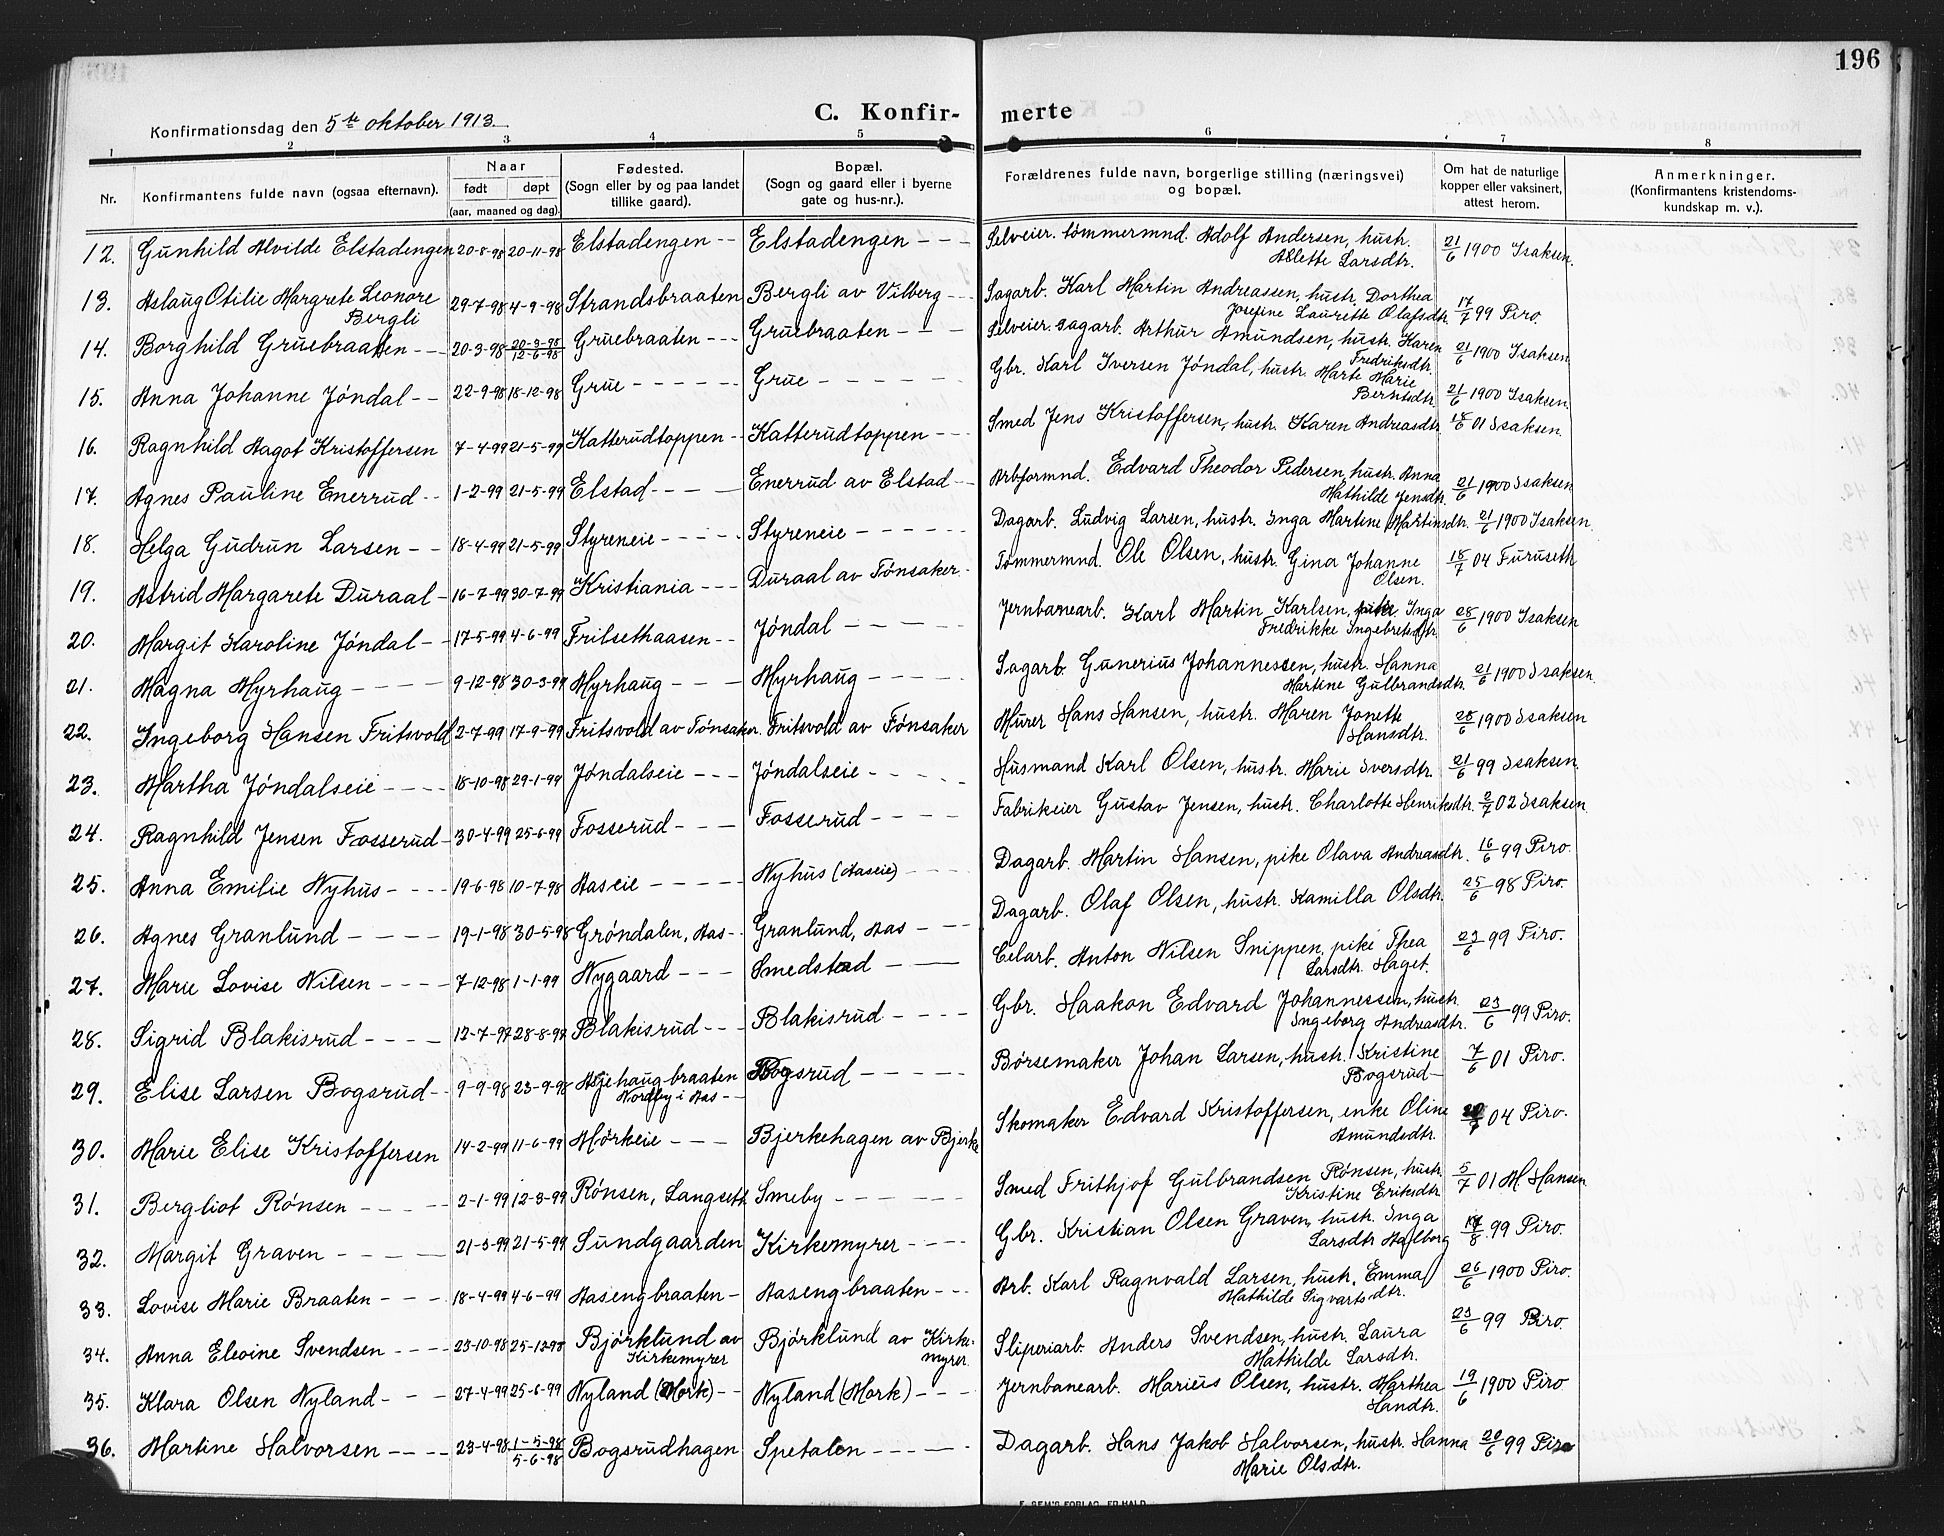 196
Konfirmationsdag den 5te oktober 1913.
C. Konfir- merte
1 2 3 4 5 6 7 8
Nr. Konfirmantens fulde navn (ogsaa efternavn). Naar født døpt (aar, maaned og dag). Fødested. (Sogn eller by og paa landet tillike gaard). Bopæl. (Sogn og gaard eller i byerne gate og hus-nr.). Forældrenes fulde navn, borgerlige stilling (næringsvei) og bopæl. Om hat de naturlige kopper eller vaksinert, attest herom. Anmerkninger. (Konfirmantens kristendoms-kundskap m. v.).
12. Gunhild Alvilde Elstadengen 20-8-98 20-11-98 Elstadengen -- Elstadengen --- Selveier. tømmermnd. Adolf Andersen, hustr. Allette Larsdtr. 21/6 1900 Isaksen.
13. Aslaug Otilie Margrete Leonore Bergli 29-7-98 4-9-98 Strandsbraaten Bergli av Vilberg -- Sagarb. Karl Martin Andreassen, hustr. Dorthea Josefine Laurette Olafsdtr. 17/7 99 Piro.
14. Borghild Gruebraaten -- 20-3-98 20-3-98 12-6-98 Gruebraaten -- Gruebraaten --- Selveier. sagarb. Arthur Amundsen, hustr. Karen Fredriksdtr. 21/6 1900 Isaksen
15. Anna Johanne Jøndal -- 22-9-98 18-12-98 Grue ----- Grue ----- Gbr. Karl Iversen Jøndal, hustr. Marte Marie Berntsdtr. 21/6 1900 Isaksen.
16. Ragnhild Aagot Kristoffersen 7-4-99 21-5-99 Katterudtoppen -- Katterudtoppen -- Smed Jens Kristoffersen, hustr. Karen Andreasdtr. 18/6 01 Isaksen.
17. Agnes Pauline Enerrud -- 1-2-99 21-5-99 Elstad --- Enerrud av Elstad -- Arbformnd. Edvard Theodor Pedersen, hustr. Anna Mathilde Jensdtr. 21/6 1900 Isaksen
18. Helga Gudrun Larsen -- 18-4-99 21-5-99 Styreneie ---- Styreneie ---- Dagarb. Ludvig Larsen, hustr. Inga Martine Martinsdtr. 21/6 1900 Isaksen.
19. Astrid Margarete Duraal - 16-7-99 30-7-99 Kristiania --- Duraal av Tønsaker - Tømmermnd. Ole Olsen, hustr. Gina Johanne Olsen. 18/7 04 Furuseth
20. Margit Karoline Jøndal -- 17-5-99 4-6-99 Frilsethaasen -- Jøndal ---- Jernbanearb. Karl Martin Karlsen, pike Inga Fredrikke Ingebretsdtr. 28/6 1900 Isaksen
21. Magna Myrhaug ---- 9-12-98 30-3-99 Myrhaug --- Myrhaug ---- Sagarb. Gunerius Johannessen, hustr. Hanna Martine Gulbrandsdtr. 21/6 1900 Isaksen.
22. Ingeborg Hansen Fritsvold 2-7-99 17-9-99 Fritsvold av Tønsaker. Fritsvold av Tønsaker Murer Hans Hansen, hustr. Maren Jonette Hansdtr. 28/6 1900 Isaksen
23. Martha Jøndalseie ---- 18-10-98 29-1-99 Jøndalseie --- Jøndalseie ---- Husmand Karl Olsen, hustr. Marie Iversdtr. 21/6 99 Isaksen.
24. Ragnhild Jensen Fosserud - 30-4-99 25-6-99 Fosserud --- Fosserud ---- Fabrikeier Gustav Jensen, hustr. Charlotte Henriksdtr. 2/7 02 Isaksen
25. Anna Emilie Nyhus ---- 19-6-98 10-7-98 Aaseie ---- Nyhus (Aaseie) --- Dagarb. Martin Hansen, pike Olava Andreasdtr. 16/6 99 Piro.
26. Agnes Granlund ---- 19-1-98 30-5-98 Grøndalen, Aas -- Granlund, Aas --- Dagarb. Olaf Olsen, hustr. Kamilla Olsdtr. 25/6 98 Piro.
27. Marie Lovise Nilsen ---- 7-12-98 1-1-99 Nygaard --- Smedstad --- Celarb. Anton Nilsen Snippen, pike Thea Larsdtr. Haget. 23/6 99 Piro.
28. Sigrid Blakisrud ---- 12-7-97 28-8-97 Blakisrud --- Blakisrud ---- Gbr. Haakon Edvard Johannessen, hustr. Ingeborg Andreasdtr. 23/6 99 Piro.
29. Elise Larsen Bogsrud -- 9-9-98 23-9-98 Asjehaugbraaten Nordby i Aas -- Bogsrud ----- Børsemaker Johan Larsen, hustr. Kristine Bogsrud - 7/6 01 Piro.
30. Marie Elise Kristoffersen 14-2-99 11-6-99 Mørkeie --- Bjerkehagen av Bjerke Skomaker Edvard Kristoffersen, enke Oline Amundsdtr. 04 Piro.
31. Bergliot Rønsen ---- 2-1-99 12-3-99 Rønsen, Langseth Smeby ----- Smed Frithjof Gulbrandsen Rønsen, hustr. Kristine Eriksdtr 5/7 01 M. Hansen
32. Margit Graven ---- 21-3-99 21-5-99 Sundgaarden Kirkemyrer ---- Gbr. Kristian Olsen Graven, hustr. Inga Larsdtr Aalborg 17/8 99 Piro.
33. Lovise Marie Braaten --- 18-4-99 4-6-99 Aasengbraaten - Aasengbraaten --- Arb. Karl Ragnvald Larsen, hustr. Emma Mathilde Sigvartsdtr. 26/6 1900 Piro.
34. Anna Eleoine Svendsen ---- 23-10-98 25-12-98 Bjørklund av Kirkemyrer Bjørklund av Kirke-myrer. Sliperiarb. Anders Svendsen, hustr. Laura Mathilde Larsdtr. 23/6 99 Piro.
35. Klara Olsen Nyland --- 27-4-99 25-6-99 Nyland (Mork) -- Nyland (Mork) --- Jernbanearb. Marius Olsen, hustr. Marthea Handtr. 19/6 1900 Piro
36. Martine Halvorsen ---- 23-4-98 1-5-98 5-6-98 Bogsrudhagen Spetalen ---- Dagarb. Hans Jakob Halvorsen, hustr. Hanna Marie Olsdtr. 20/6 99 Piro